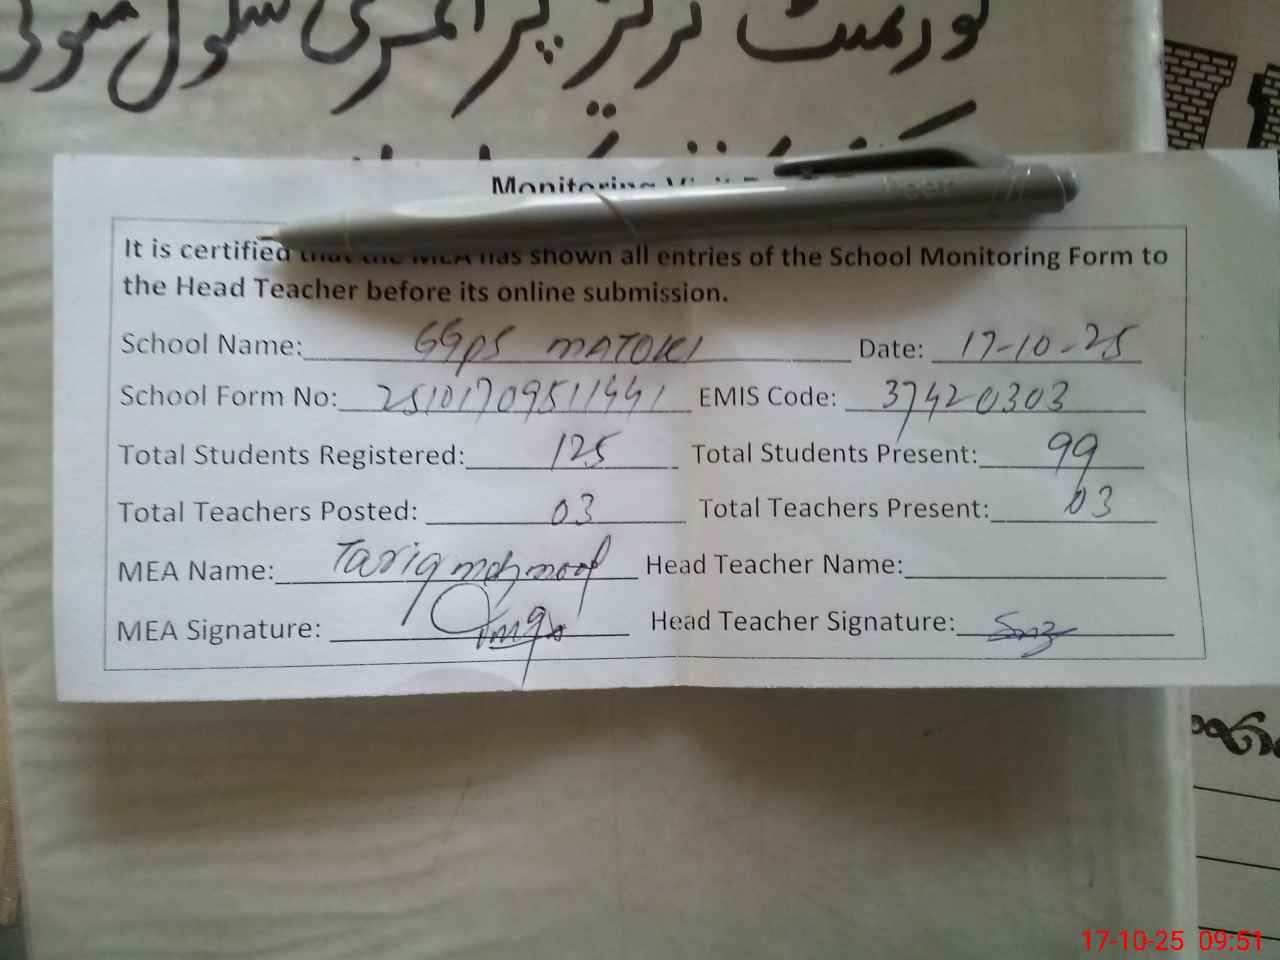 گورنمنٹ گرلز پرائمری سکول
Monitoring Visit
It is certified that the MEA has shown all entries of the School Monitoring Form to
the Head Teacher before its online submission.
School Name: GGPS MATOKI Date: 17-10-25
School Form No: 25101709511441 EMIS Code: 37420303
Total Students Registered: 125 Total Students Present: 99
Total Teachers Posted: 03 Total Teachers Present: 03
MEA Name: Tariq mehmood Head Teacher Name:
MEA Signature: Head Teacher Signature:
17-10-25 09:51